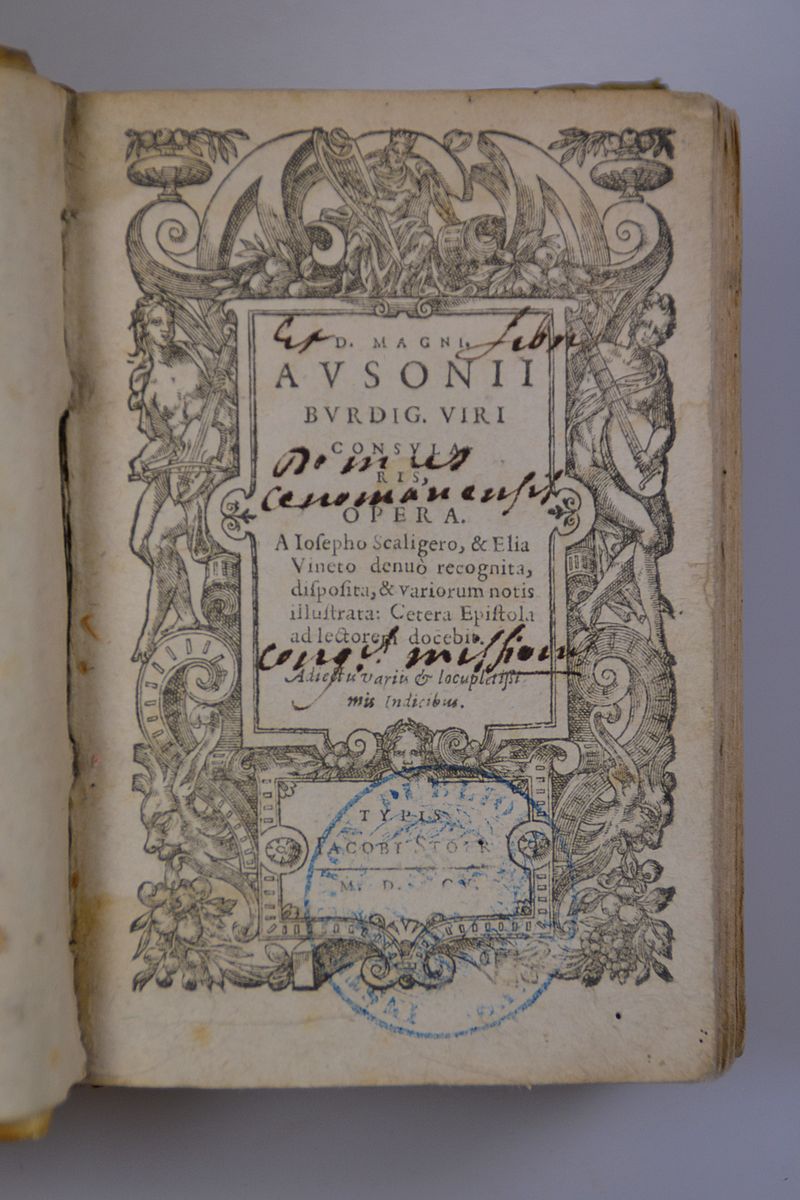 Ex D. MAGNI. Libr
AVSONII
BVRDIG. VIRI
CONSVLA
Domus
RIS,
cenomanensis
OPERA.
A Iosepho Scaligero, & Elia
Vineto denuò recognita,
disposita, & variorum notis
illustrata: Cetera Epistola
ad lectorem docebit.
congis missionis
Adiectis variis & locupletissi-
mis Indicibus.
TYPIS
IACOBI STOER
M. D.